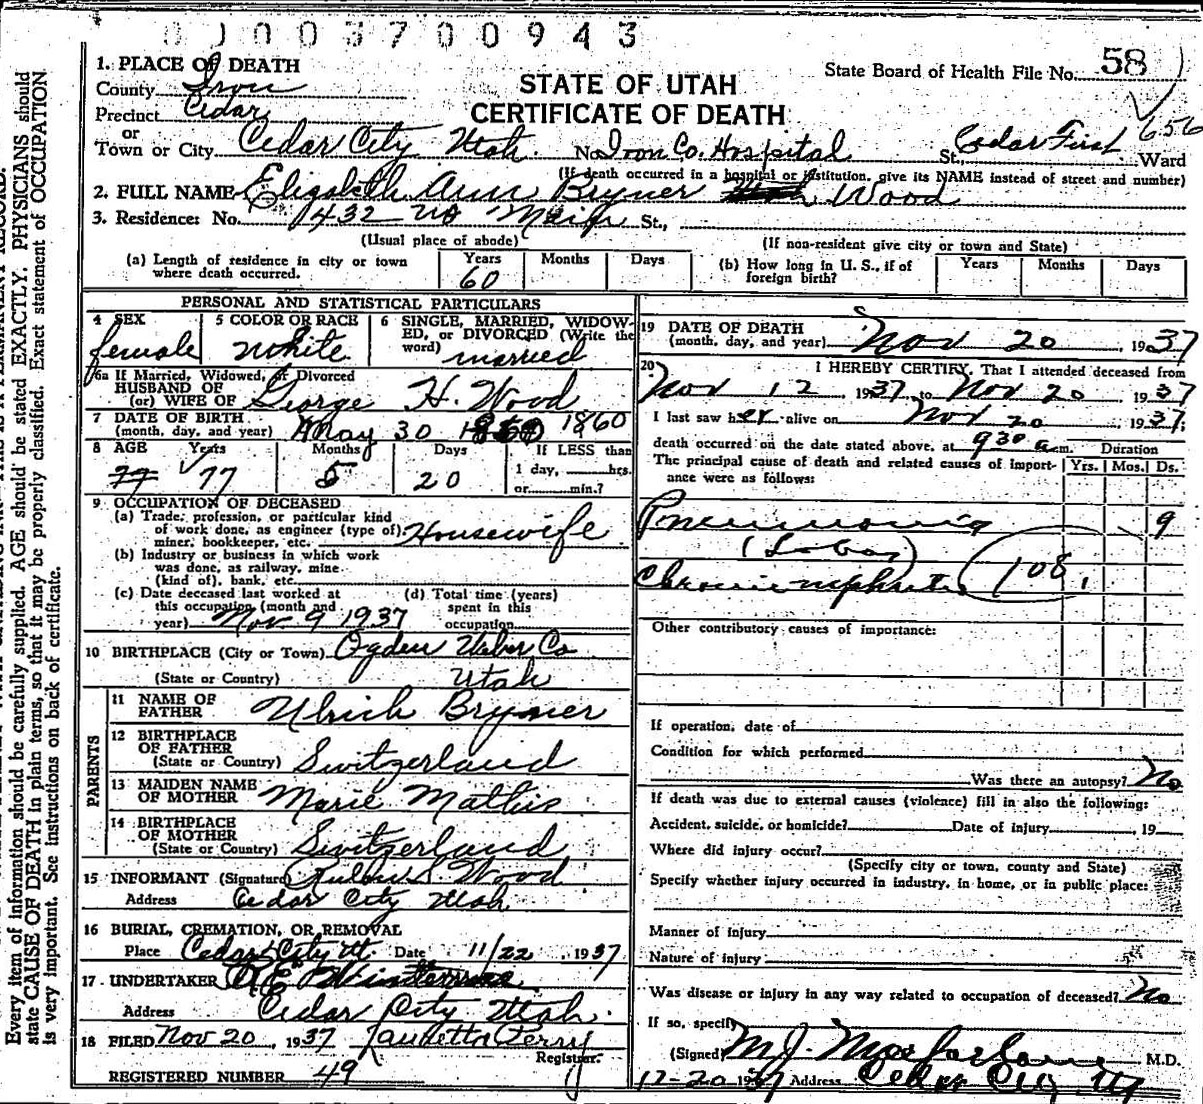 00003700943
1. PLACE OF DEATH
County Iron
Precinct Cedar
or
Town or City Cedar City Utah. No. Iron Co. Hospital St., Cedar First Ward
STATE OF UTAH
CERTIFICATE OF DEATH
State Board of Health File No. 58
656
(If death occurred in a hospital or institution, give its NAME instead of street and number)
2. FULL NAME Elizabeth Ann Bryner Wood
3. Residence: No. 432 No Main St.,
(Usual place of abode) (If non-resident give city or town and State)
(a) Length of residence in city or town where death occurred. Years 60 Months Days
(b) How long in U. S., if of foreign birth? Years Months Days
PERSONAL AND STATISTICAL PARTICULARS
4 SEX female
5 COLOR OR RACE White
6 SINGLE, MARRIED, WIDOWED, or DIVORCED (Write the word) married
6a If Married, Widowed, or Divorced
HUSBAND OF
(or) WIFE OF George H. Wood
7 DATE OF BIRTH
(month, day, and year) May 30 1860
8 AGE Years 77 Months 5 Days 20 If LESS than 1 day, hrs. or min.?
9 OCCUPATION OF DECEASED
(a) Trade, profession, or particular kind of work done, as engineer (type of), miner, bookkeeper, etc. Housewife
(b) Industry or business in which work was done, as railway, mine (kind of), bank, etc.
(c) Date deceased last worked at this occupation (month and year) Nov. 9 1937
(d) Total time (years) spent in this occupation
10 BIRTHPLACE (City or Town) Ogden Weber Co
(State or Country) Utah
PARENTS
11 NAME OF FATHER Ulrich Bryner
12 BIRTHPLACE OF FATHER
(State or Country) Switzerland
13 MAIDEN NAME OF MOTHER Marie Mathis
14 BIRTHPLACE OF MOTHER
(State or Country) Switzerland
15 INFORMANT (Signature) Wood
Address Cedar City Utah
16 BURIAL, CREMATION, OR REMOVAL
Place Cedar City Ut. Date 11/22, 1937
17 UNDERTAKER
Address Cedar City Utah.
18 FILED Nov 20, 1937 Perry
Registrar.
REGISTERED NUMBER 49
19 DATE OF DEATH
(month, day, and year) Nov 20, 1937
20 I HEREBY CERTIFY, That I attended deceased from
Nov 12, 1937, to Nov 20, 1937
I last saw her alive on Nov 20, 1937;
death occurred on the date stated above, at 930 a.m.
Duration
The principal cause of death and related causes of importance were as follows: Yrs. Mos. Ds.
Pneumonia 9
(Lobar)
Chronic nephritis 108
Other contributory causes of importance:
If operation, date of
Condition for which performed
Was there an autopsy? No
If death was due to external causes (violence) fill in also the following:
Accident, suicide, or homicide? Date of injury , 19
Where did injury occur?
(Specify city or town, county and State)
Specify whether injury occurred in industry, in home, or in public place:
Manner of injury
Nature of injury
Was disease or injury in any way related to occupation of deceased? No
If so, specify
(Signed) M.J. Macfarlane M.D.
12-20 1937 Address Cedar City, Ut
Every item of information should be carefully supplied. AGE should be stated EXACTLY. PHYSICIANS should
state CAUSE OF DEATH in plain terms, so that it may be properly classified. Exact statement of OCCUPATION
is very important. See instructions on back of certificate.